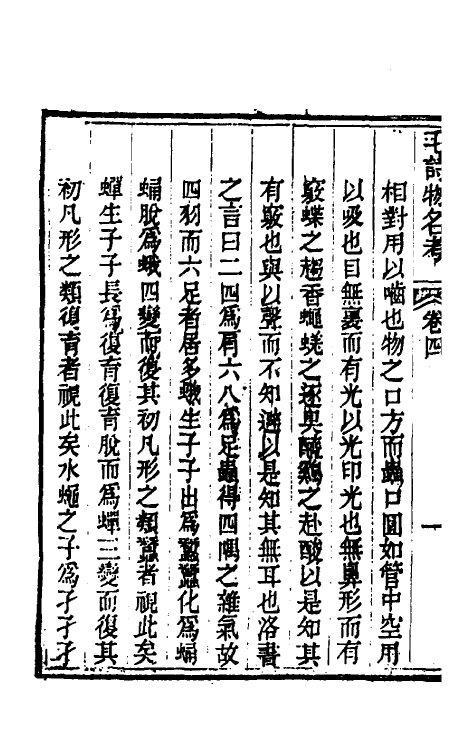 毛詩物名考 卷四 一
相對用以嚙也物之口方而蟲口圓如管中空用
以吸也目無裏而有光以光印光也無鼻形而有
竅蝶之趨香蠅蟯之逐臭醯鷄之赴酸以是知其
有竅也與以聲而不知避以是知其無耳也洛書
之言曰二四爲肩六八爲足蟲得四隅之雜氣故
四羽而六足者居多蛾生子子出爲蠶蠶化爲蛹
蛹脫爲蛾四變而復其初凡形之類蠶者視此矣
蟬生子子長爲復育復育脫而爲蟬三變而復其
初凡形之類復育者視此矣水蠅之子爲孑孑孑